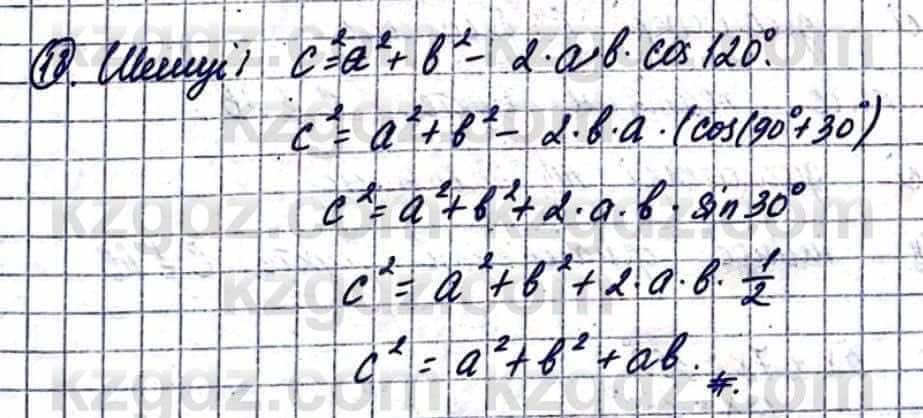 18. Шешуі: c² = a² + b² - 2·a·b·cos 120°.
c² = a² + b² - 2·b·a·(cos(90° + 30°)
c² = a² + b² + 2·a·b·sin 30°
c² = a² + b² + 2·a·b·1/2
c² = a² + b² + ab. #.